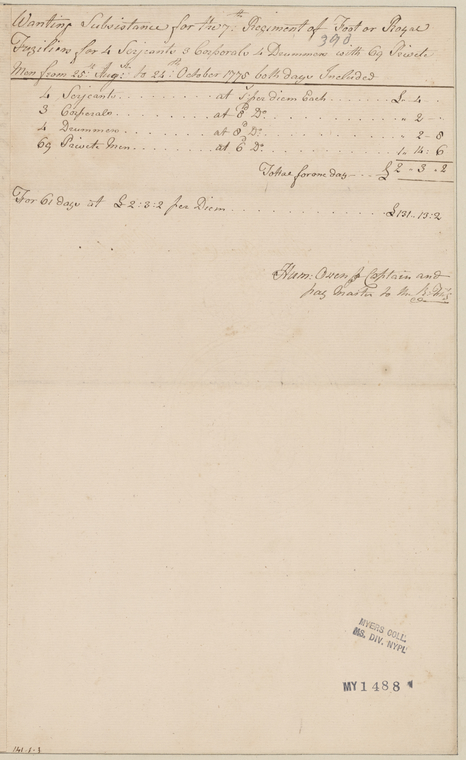 Wanting Subsistance for the 7th: Regiment of Foot or Royal
398
Fuziliers for 4 Serjeants 3 Corporals 4 Drummers with 69 Private
Men from 25th Augst: to 24th: October 1775 both days Included
4 Serjeants . . . . . . . at 1s per diem Each . . . . £ " 4 - "
3 Corporals . . . . . . . at 8d Do. . . . . . . . " 2 - "
4 Drummers . . . . . . . at 8d Do. . . . . . . . " 2 - 8
69 Private Men . . . . . . at 6d Do. . . . . . . . 1 . 14 : 6
Tottal for one day . . . £ 2 - 3 - 2
For 61 days at £ 2 : 3 : 2 per Diem . . . . . . . . £ 131 . 13 : 2
Hum: Owen Captain and
pay Master to the R: Fus
MYERS COLL.
MS. DIV. NYPL
MY 1488